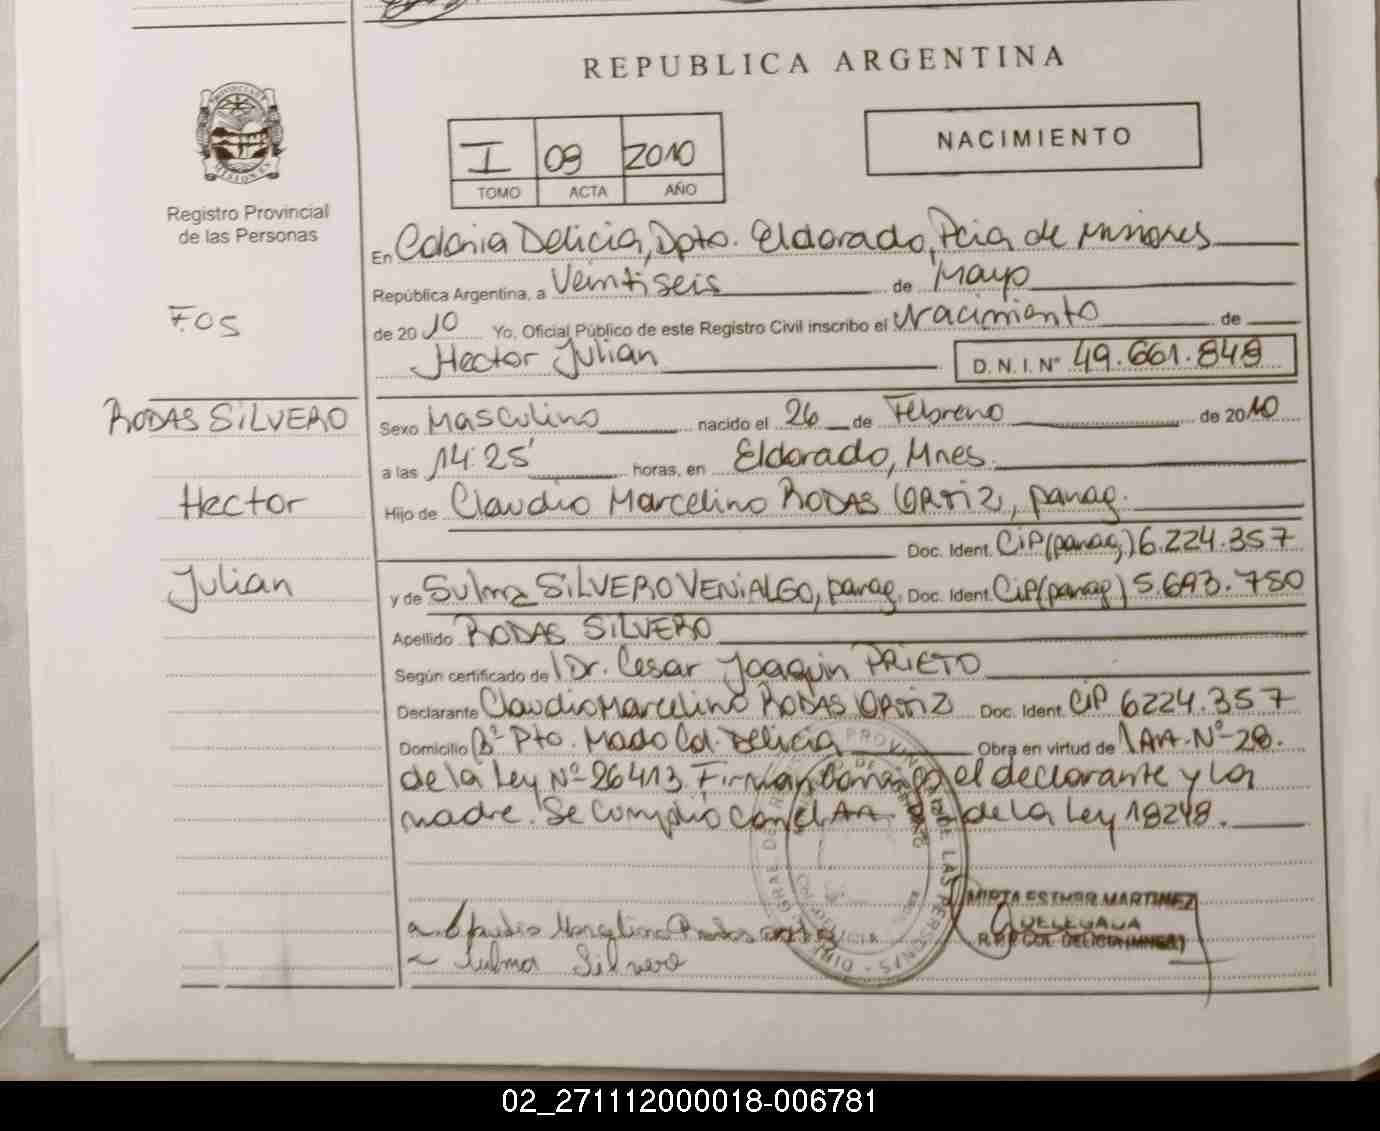 REPUBLICA ARGENTINA
PROVINCIA DE MISIONES
Registro Provincial
de las Personas
F.OS
RODAS SILVERO
Hector
Julian
I 09 2010
TOMO ACTA AÑO
NACIMIENTO
En Colonia Delicia, Dpto. Eldorado, Pcia de Misiones
República Argentina, a Veintiseis de Mayo
de 2010 Yo, Oficial Público de este Registro Civil inscribo el Nacimiento de
Hector Julian D.N.I. N° 49.661.848
Sexo Masculino nacido el 26 de Febrero de 2010
a las 14:25' horas, en Eldorado, Mnes.
Hijo de Claudio Marcelino RODAS ORTIZ, parag.
Doc. Ident. CIP(parag.) 6.224.357
y de Sulma SILVERO VENIALGO, parag. Doc. Ident. CIP(parag.) 5.693.750
Apellido RODAS SILVERO
Según certificado de Dr. Cesar Joaquin PRIETO
Declarante Claudio Marcelino RODAS ORTIZ Doc. Ident. CIP 6224.357
Domicilio B° Pto. Mado Col. Delicia Obra en virtud de AA. N°-28.
de la Ley N°-26413. Firman el declarante y la
madre. Se cumplió con el AA. de la Ley 18248.
MIRTA ESTHER MARTINEZ
DELEGADA
Sulma Silvero
02_271112000018-006781